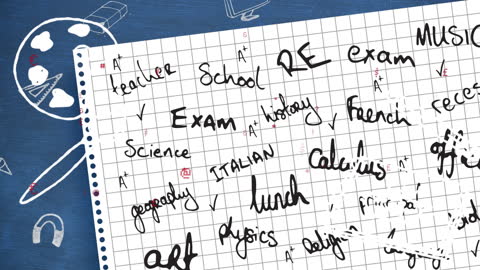 MUSIC
A+ School RE exam
teacher A+ A+
✓ EXAM history French
Science A+ ITALIAN calculus A+
A+ geography ✓ lunch principal
art physics A+ Religion